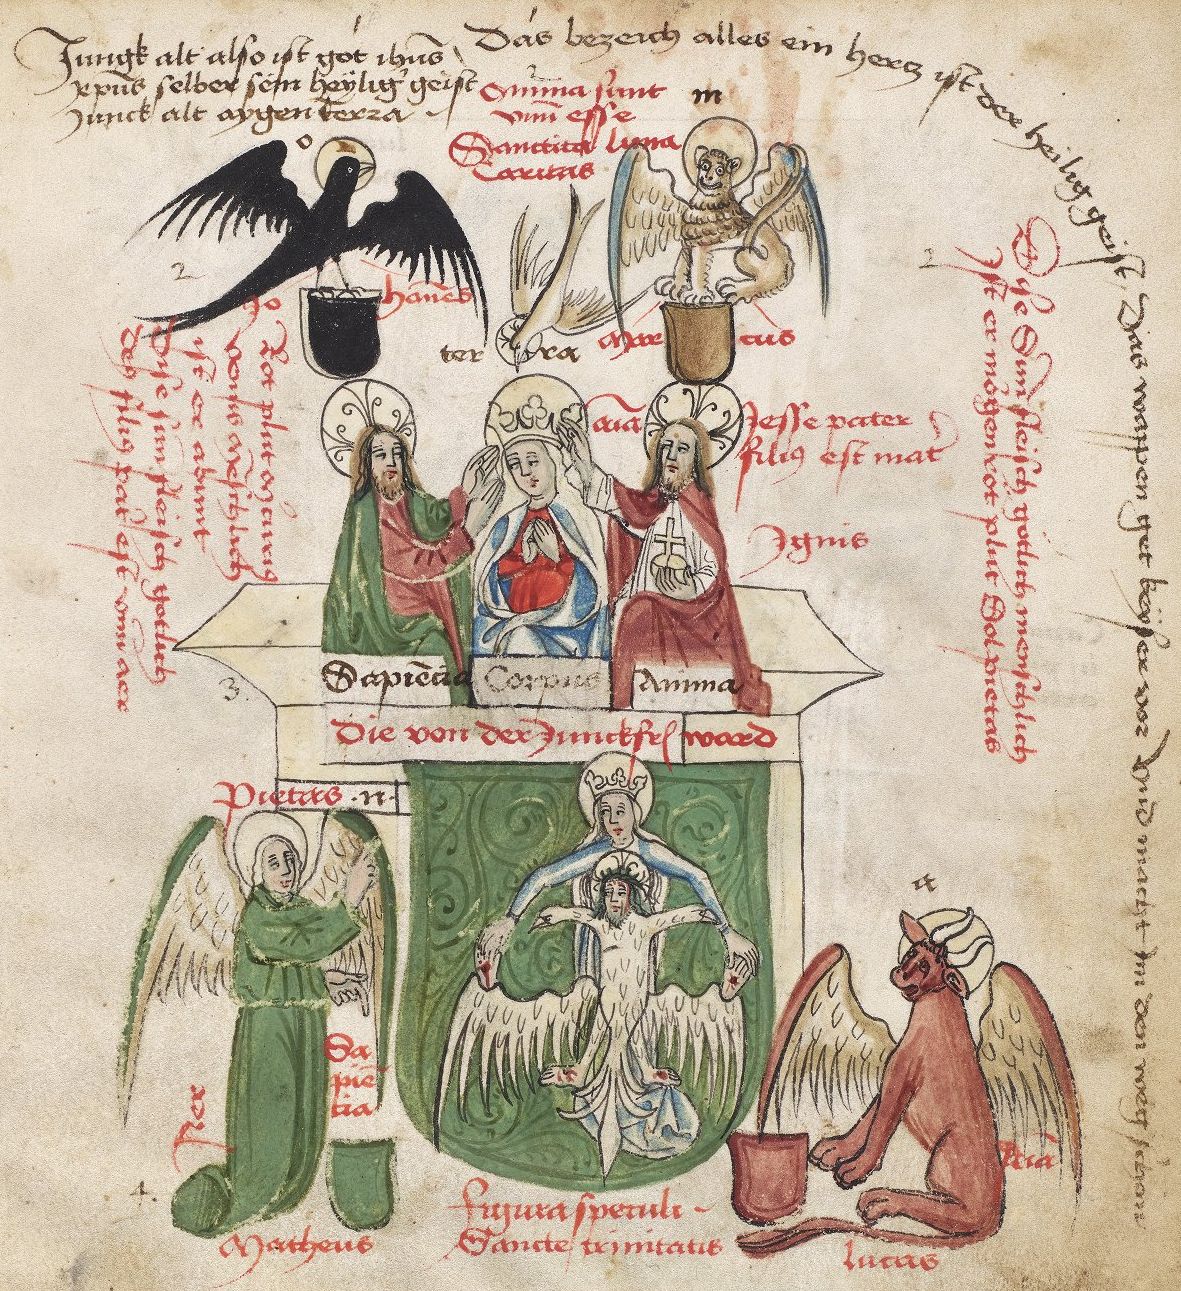 Jungk alt also ist got ihus
xpus selber sein heylig geist
Junck alt aygen terza
Das bezeich alles ein hertz ist der heilig geist, Das wappen get böser vor vnd macht im den weg schon
Omnia sunt
vnum esse
Sanctita luna
Caritas
o
m
2
2
Jo hanes
ter ra
Mar cus
Rot plut
ist er
Dise sein fleisch gotlich
den filius
aer
Dise Sein fleisch gotlich menschlich
Ist er mögen rot plut Sol pietas
aia
Jesse pater
filius est mat
Ignis
Sapiencia Corpus Anima
3.
Die von der Junckfr ward
Pietas .n.
a
Sa
pie
tia
aer
aia
4.
Matheus
figura speculi
Sancte trinitatis
lucas